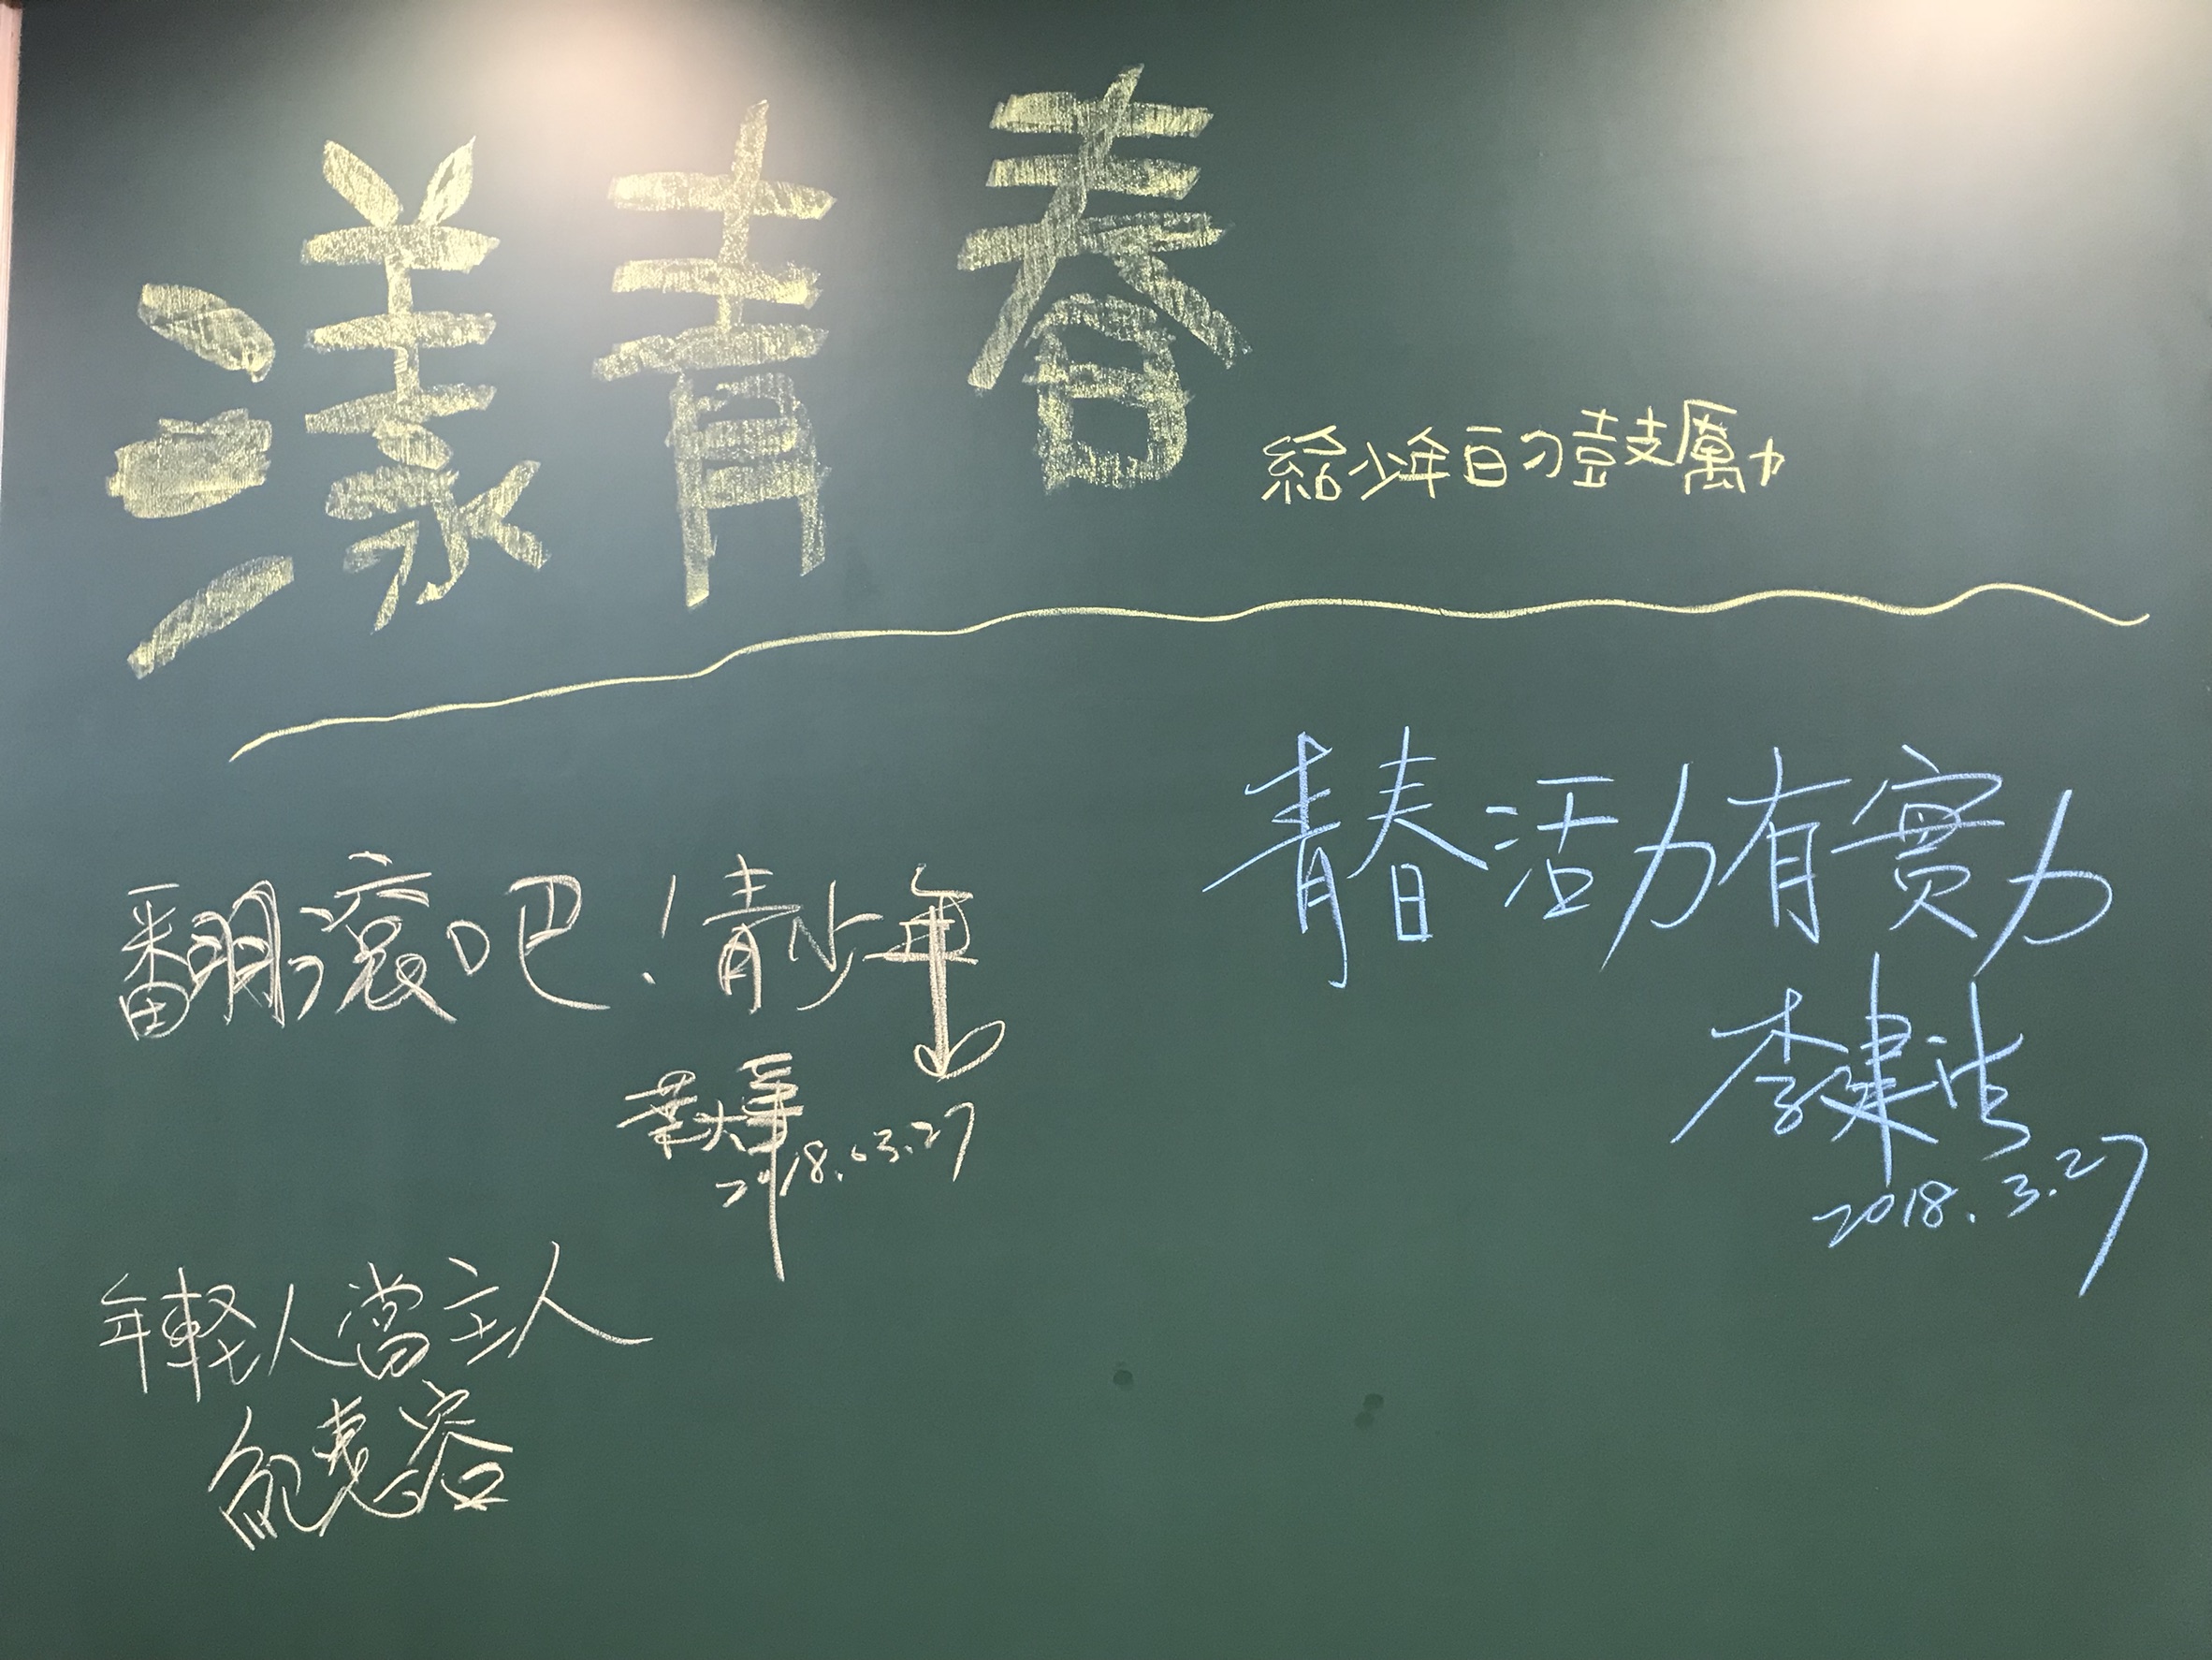 漾青春
給少年的鼓勵
青春活力有實力
李建
2018.3.27
翻滾吧!青少年
葉大華
2018.03.27
年輕人當主人
惠容